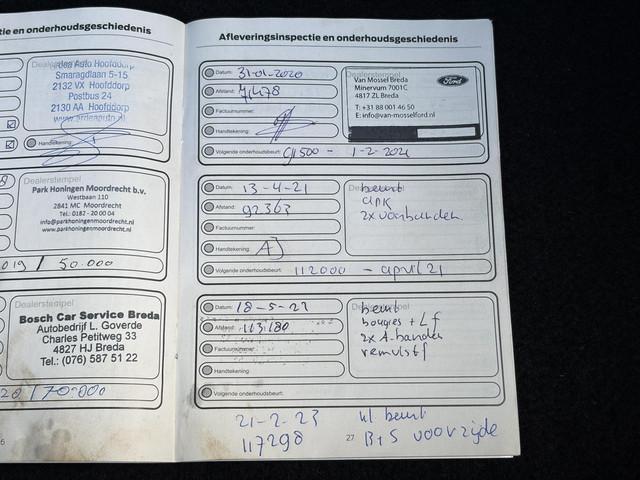 tie en onderhoudsgeschiedenis
Smaragdlaan 5-15
2132 VX Hoofddorp
Postbus 24
2130 AA Hoofddorp
www.ardeaauto.nl
Handtekening:
Park Honingen Moordrecht b.v.
Westbaan 110
2841 MC Moordrecht
Tel.: 0182 - 20 00 04
info@parkhoningenmoordrecht.nl
www.parkhoningenmoordrecht.nl
019 / 50.000
Dealerstempel
Bosch Car Service Breda
Autobedrijf L. Goverde
Charles Petitweg 33
4827 HJ Breda
Tel.: (076) 587 51 22
20 / 70.000
6
Afleveringsinspectie en onderhoudsgeschiedenis
Datum: 31-01-2020
Afstand: 71478
Factuurnummer:
Handtekening:
Dealerstempel
Van Mossel Breda
Minervum 7001C
4817 ZL Breda
T: +31 88 001 46 50
E: info@van-mosselford.nl
Ford
Volgende onderhoudsbeurt: 91500 - 1-2-2021
Datum: 13-4-21
Afstand: 92363
Factuurnummer:
Handtekening:
beurt
apk
2x voorbanden
Volgende onderhoudsbeurt: 112000 - april 21
Datum: 18-5-21
Afstand: 113180
Factuurnummer:
Handtekening:
beurt
bougies + Lf
2x A-banden
remvlstf
Volgende onderhoudsbeurt:
21-2-23 kl beurt
117298 27 B+S voorzijde